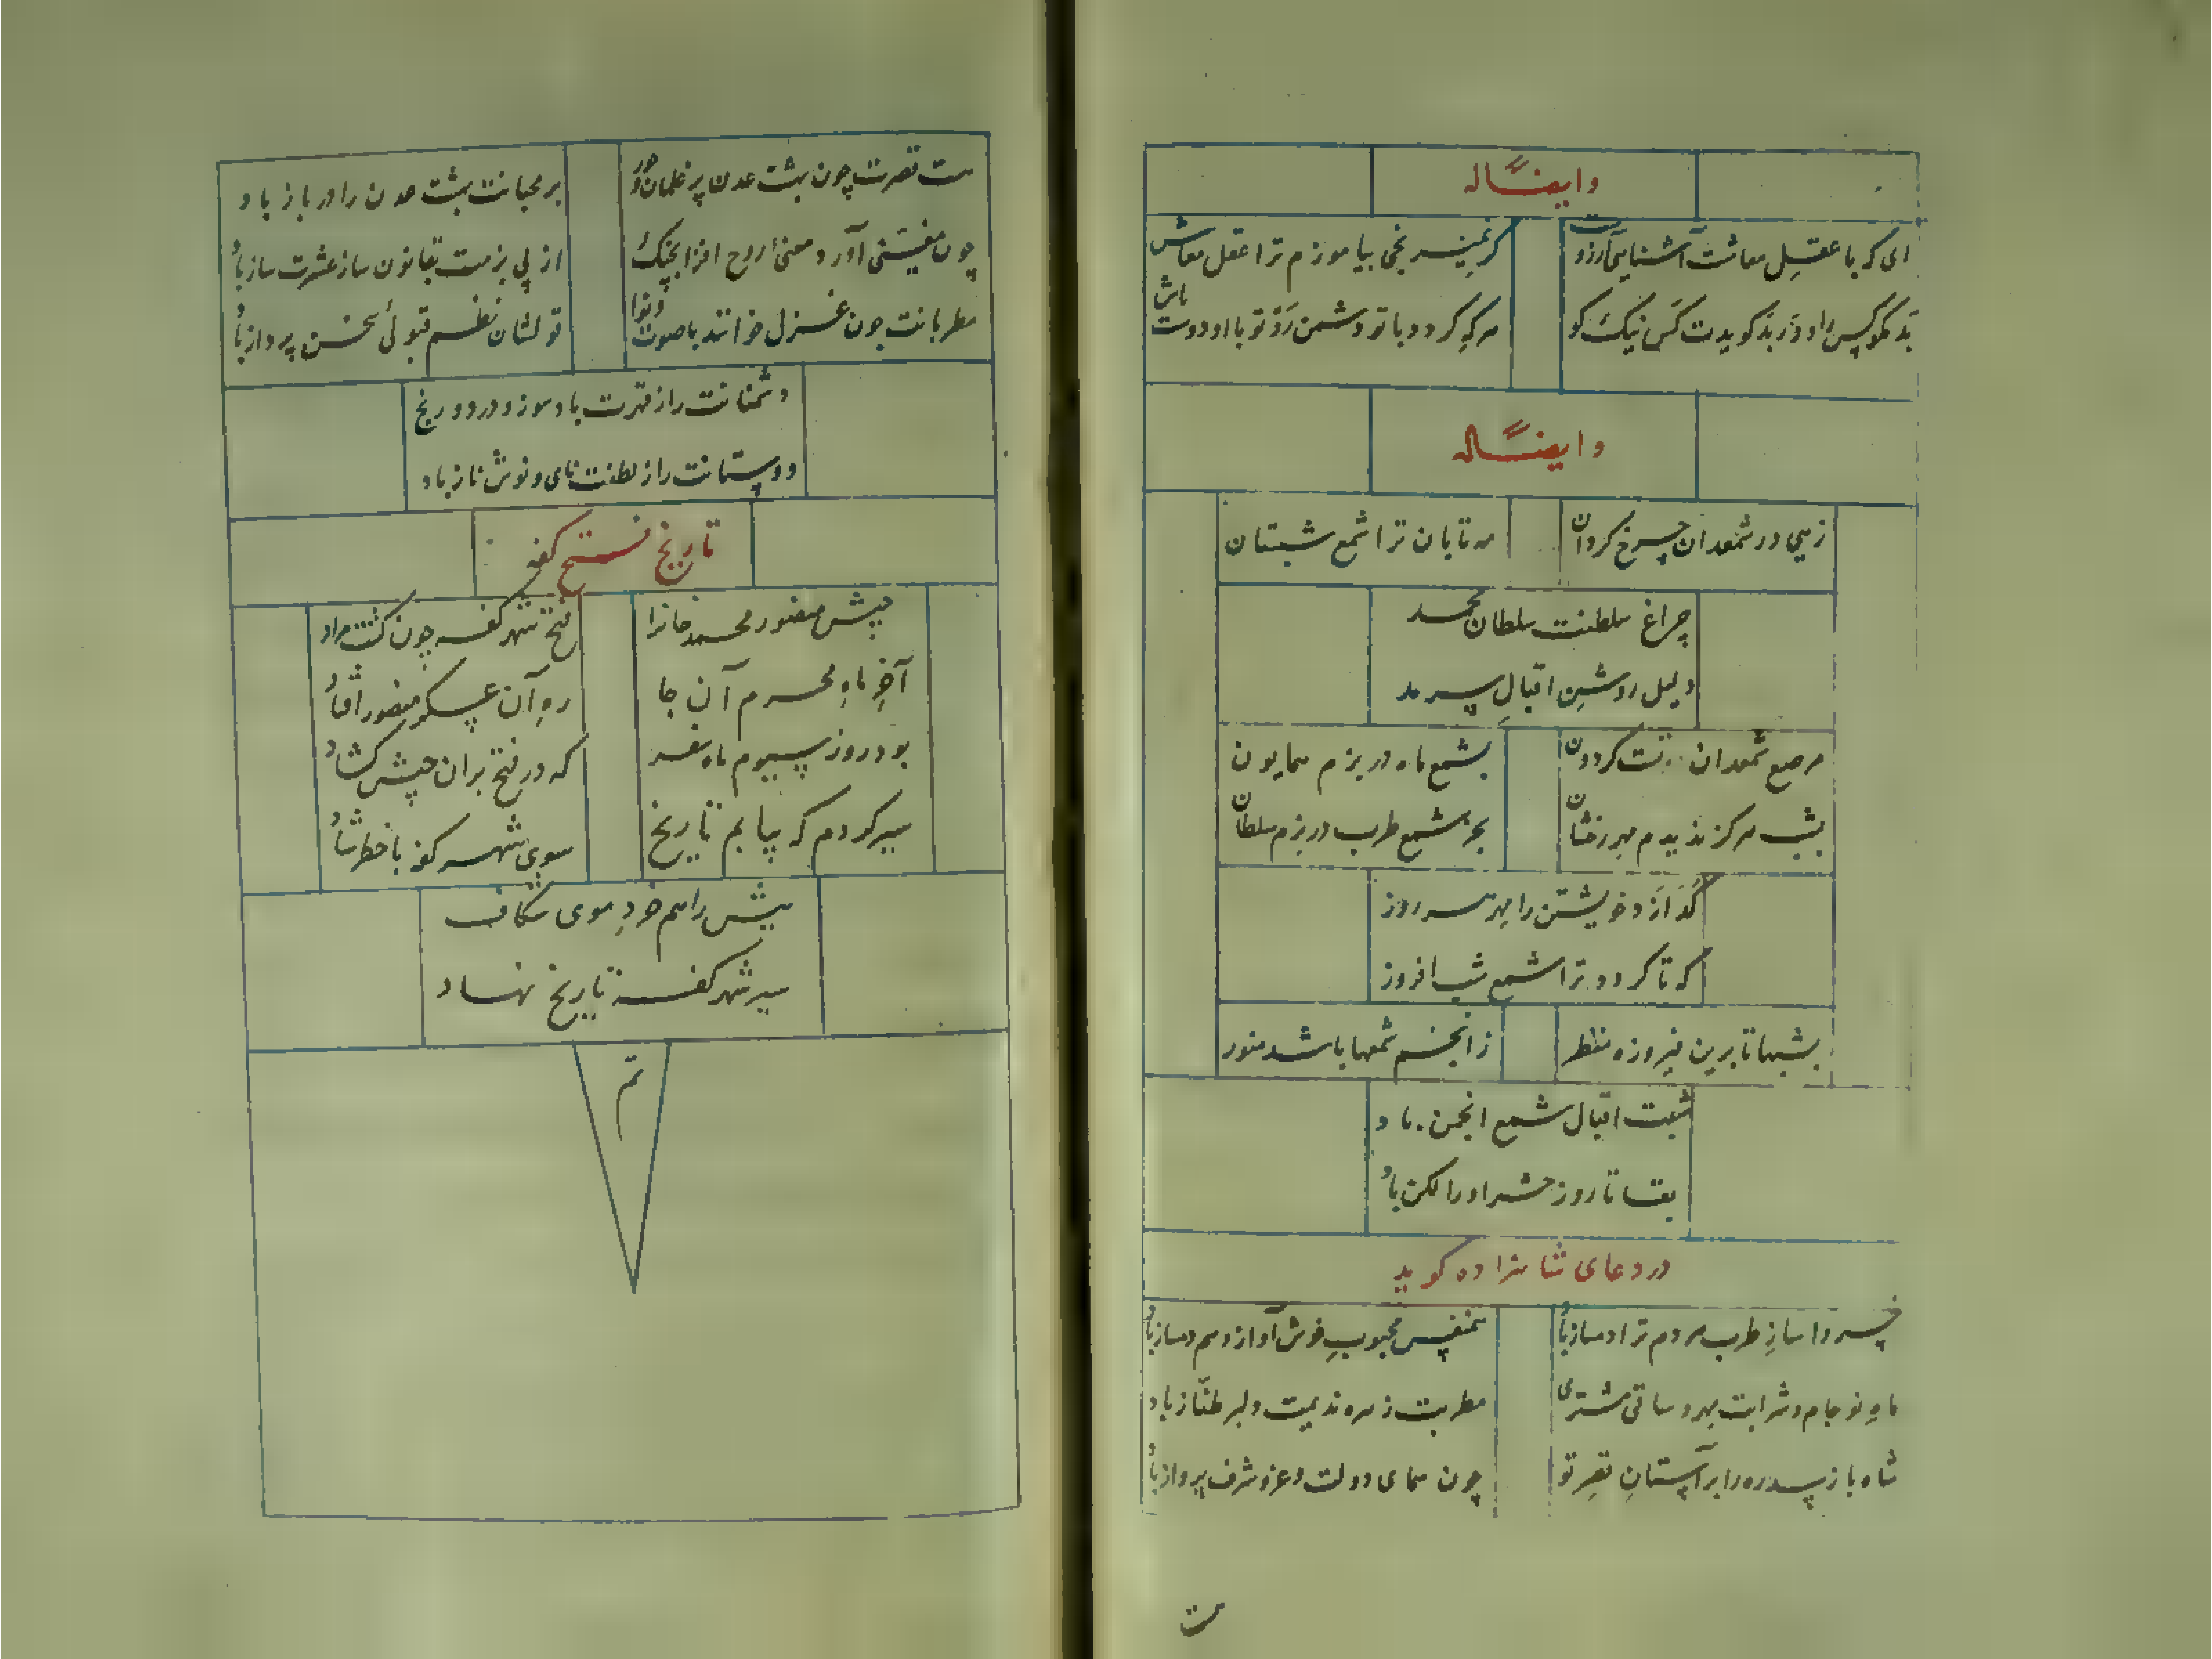 وایضاً له
ای که با عقلِ معاشت آشنایی آرزوست
گر نمیرنجی بیاموزم ترا عقل معاش
بد مگو کس را و ور بد گویدت کس نیک گو
هر که گردد با تو دشمن رَوْ تو با او دوست باش
وایضاً له
زهی در شمعدان چرخ گردان
مه تابان ترا شمع شبستان
چراغ سلطنت سلطان محمد
دلیل روشنِ اقبالِ سرمد
مرصع شمعدان گردون
بشمع ماه در بزم همایون
بشب هرگز ندیدم مهر رخشان
بجز شمع طرب در بزم سلطان
گدازد خویشتن را مهر هر روز
که تا گردد ترا شمع شب افروز
بشبها تا برین فیروزه منظر
ز انجم شمعها باشد منور
شبت اقبال شمع انجمن باد
بقا تا روز حشر او را لگن باد
در دعای شاهزاده گوید
خسروا سازِ طرب هر دم ترا دمساز باد
همنفس محبوبِ خوش آواز و هم دمساز باد
ماهِ نو جام و شرابت مهر و ساقی مشتری
مطربت زهره ندیمت دلبر طنّاز باد
شاه باز سدره را بر آستانِ قصرِ تو
چون همای دولت و عز و شرف پرواز باد
هست
هست قصرت چون بهشت عدن پر غلمان و حور
بر محبانت بهشت عدن را در باز باد
چون مغنّی آورد معنیّ روح افزا بچنگ
از پی بزمت بقانون ساز عشرت ساز باد
مطربانت چون غزل خوانند با صوت و نوا
قولشان نظم قبولی سخن پرداز باد
دشمنانت را ز قهرت باد سوز و درد و رنج
دوستانت را ز لطفت نای و نوش ناز باد
تاریخ فتح کفه
جیش منصور محمد خانرا
فتح شهر کفه چون گشت مراد
آخرِ ماهِ محرم آن جا
رهِ آن عسکرِ منصور افتاد
بود روز سیوم ماه صفر
که در فتح بران جیش گشاد
سیر کردم که بیابم تاریخ
سوی شهر کفه با خاطر شاد
پیش راهم خردِ موی شکاف
سیر شهر کفه تاریخ نهاد
تم